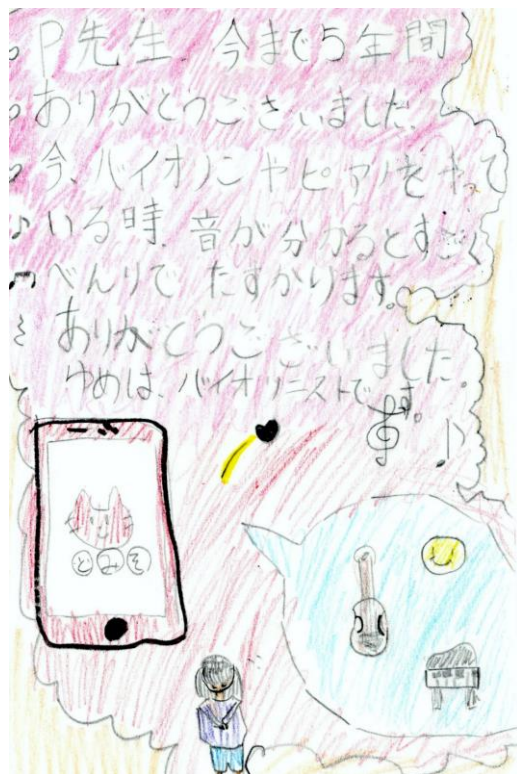 P先生 今まで5年間
ありがとうございました。
今、バイオリンやピアノをやって
いる時、音が分かるとすごく
べんりで たすかります。
ありがとうございました。
ゆめは、バイオリニストです。
どみそ